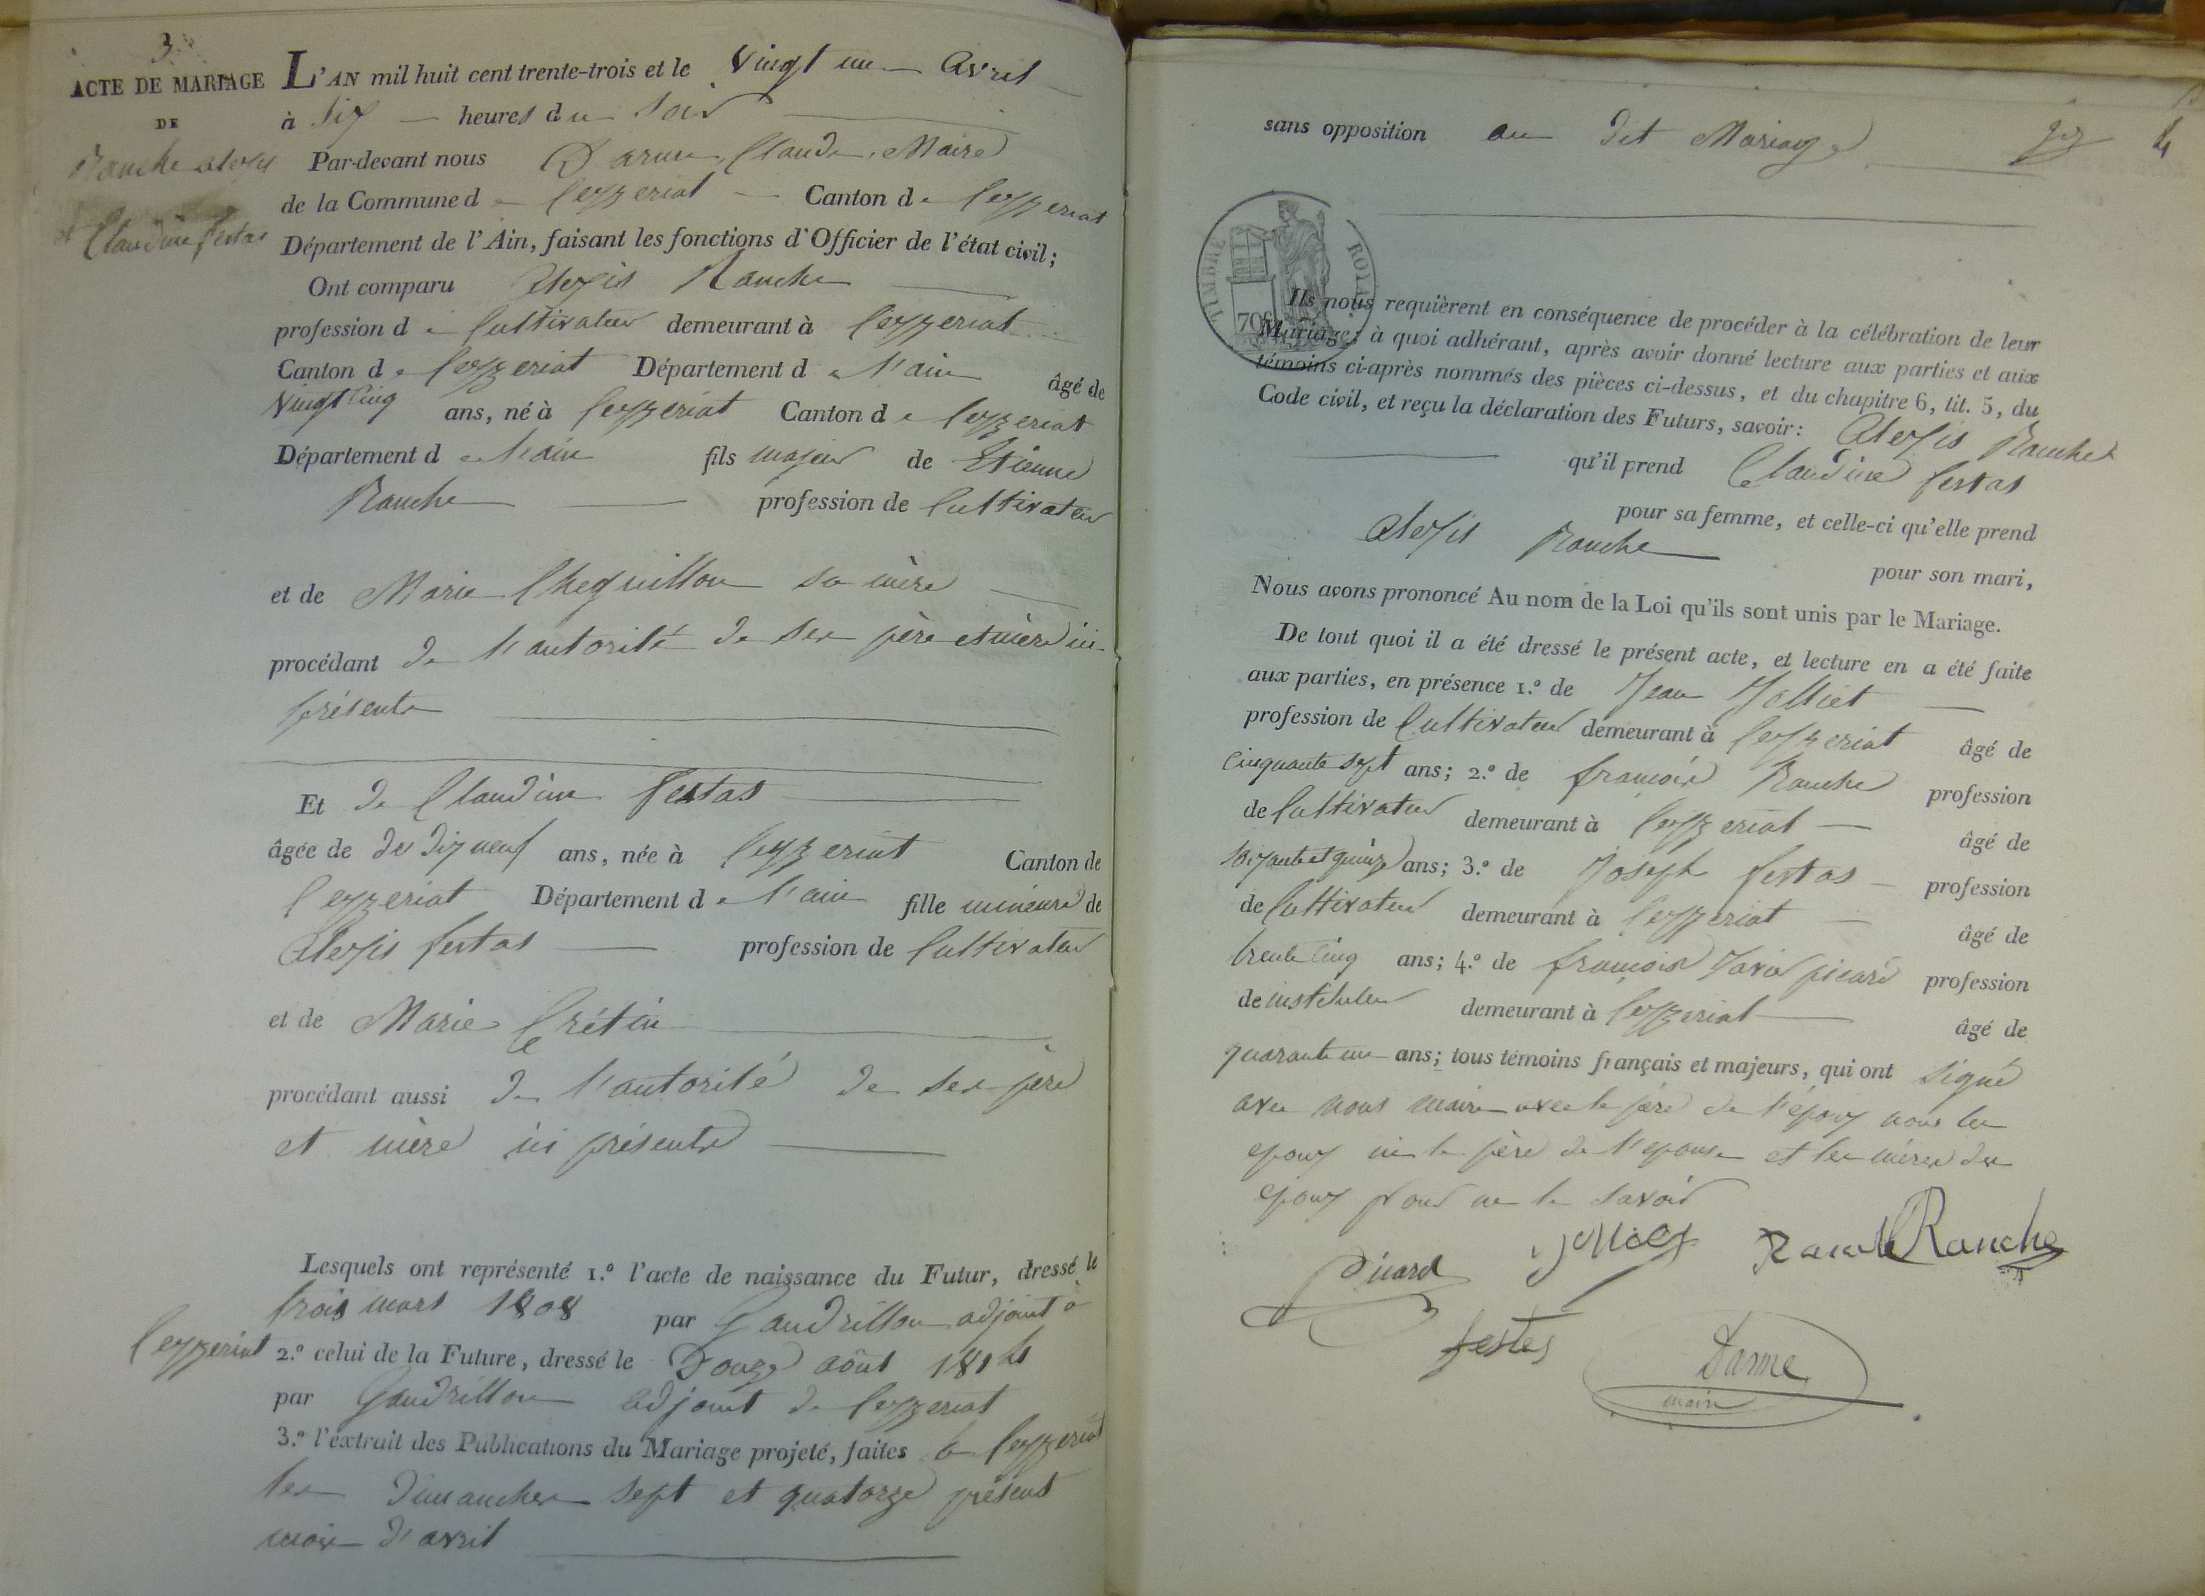 3
ACTE DE MARIAGE
DE
Ranche alexis
et Claudine festas
L'AN mil huit cent trente-trois et le Vingt un Avril
à Six heures du Soir
Par-devant nous Darme, Claude, Maire
de la Commune de Ceyzeriat Canton de Ceyzeriat
Département de l'Ain, faisant les fonctions d'Officier de l'état civil;
Ont comparu Alexis Ranche
profession de Cultivateur demeurant à Ceyzeriat
Canton de Ceyzeriat Département de l'ain âgé de
Vingt Cinq ans, né à Ceyzeriat Canton de Ceyzeriat
Département de l'ain fils majeur de Etienne
Ranche profession de Cultivateur
et de Marie Chequillon sa mère
procédant de l'autorité de ses père et mère ici
présents
Et de Claudine festas
âgée de de dix neuf ans, née à Ceyzeriat Canton de
Ceyzeriat Département de l'ain fille mineure de
Alexis festas profession de Cultivateur
et de Marie Crétin
procédant aussi de l'autorité de ses père
et mère ici présents
Lesquels ont représenté 1.º l'acte de naissance du Futur, dressé le
trois mars 1808 par Gaudrillon adjoint à
Ceyzeriat 2.º celui de la Future, dressé le Douze août 1814
par Gaudrillon adjoint de Ceyzeriat
3.º l'extrait des Publications du Mariage projeté, faites à Ceyzeriat
les dimanches sept et quatorze présent
mois d'avril
sans opposition au dit Mariage
4
TIMBRE ROYAL
70c
Ils nous requièrent en conséquence de procéder à la célébration de leur
Mariage; à quoi adhérant, après avoir donné lecture aux parties et aux
témoins ci-après nommés des pièces ci-dessus, et du chapitre 6, tit. 5, du
Code civil, et reçu la déclaration des Futurs, savoir: Alexis Ranche
qu'il prend Claudine festas
pour sa femme, et celle-ci qu'elle prend
Alexis Ranche
pour son mari,
Nous avons prononcé Au nom de la Loi qu'ils sont unis par le Mariage.
De tout quoi il a été dressé le présent acte, et lecture en a été faite
aux parties, en présence 1.º de Jean Jolliet
profession de Cultivateur demeurant à Ceyzeriat âgé de
Cinquante sept ans; 2.º de françois Ranche profession
de Cultivateur demeurant à Ceyzeriat âgé de
soixante et quinze ans; 3.º de Joseph festas profession
de Cultivateur demeurant à Ceyzeriat âgé de
trente Cinq ans; 4.º de françois Xavier picard profession
de instituteur demeurant à Ceyzeriat âgé de
quarante un ans; tous témoins français et majeurs, qui ont signé
avec nous maire avec le père de l'époux non les
epoux ni le père de l'epouse et les mères des
epoux pour ne le savoir
Picard Ranche Ranche
festas Darme
maire